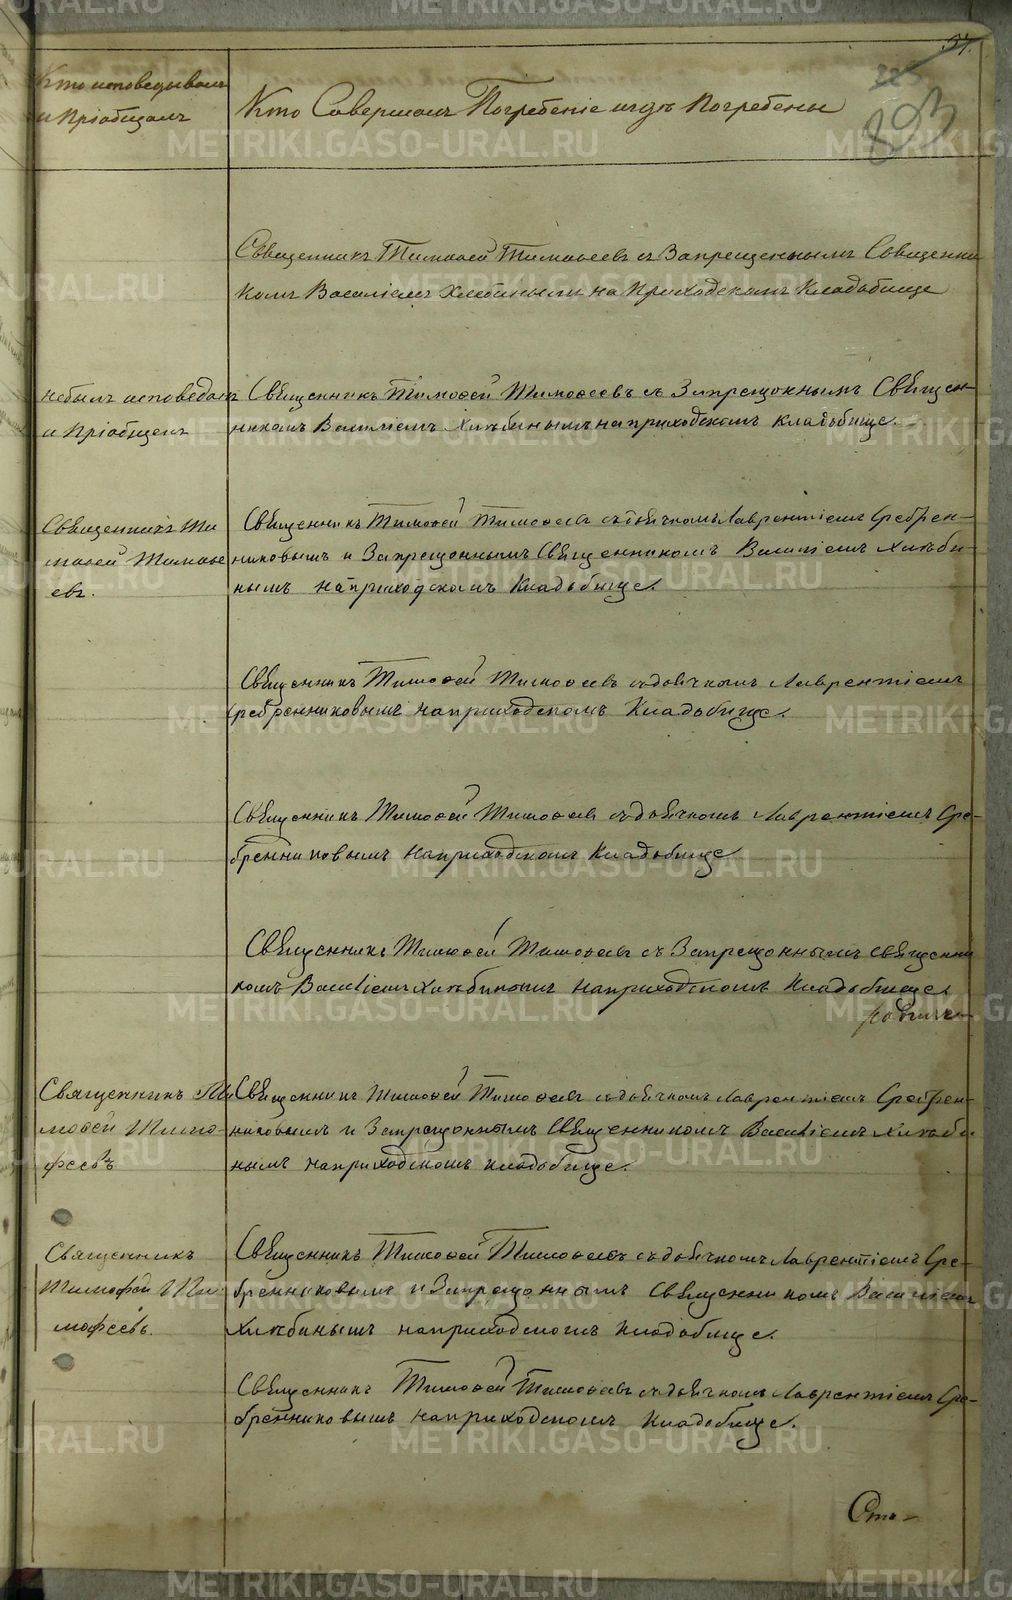 57.
225
893
Кто исповедывалъ
и Пріобщалъ
Кто Совершалъ Погребеніе игдѣ Погребены
Священникъ Тимофей Тимофеевъ съ Запрещеннымъ Священни
комъ Василіемъ Хлебинымъ на Приходскомъ Кладбище
небылъ исповеданъ
и Пріобщенъ
Священникъ Тимоѳей Тимоѳеевъ съ Запрещоннымъ Священ-
никомъ Василіемъ Хлѣбинымъ наприходскомъ кладбище.
Священникъ Ти
мофей Тимофе
евъ.
Священникъ Тимоѳей Тимоѳеевъ съдьячкомъ Лаврентіемъ Сребрен-
никовымъ и Запрещоннымъ Священникомъ Василіемъ Хлѣби-
нымъ наприходскомъ Кладбище.
Священникъ Тимоѳей Тимоѳеевъ съдьячкомъ Лаврентіемъ
Сребренниковымъ наприходскомъ Кладбище.
Священникъ Тимоѳей Тимоѳеевъ съдьячкомъ Лаврентіемъ Сре-
бренниковымъ наприходскомъ Кладбище
Священникъ Тимоѳей Тимоѳеевъ съ Запрещоннымъ священни
комъ Василіемъ Хлѣбинымъ наприходскомъ Кладбище
Священникъ Ти
моѳей Тимо-
феевъ
Священникъ Тимоѳей Тимоѳеевъ съдьячкомъ Лаврентіемъ Сребрен-
никовымъ и Запрещоннымъ Священникомъ Василіемъ Хлѣби
нымъ наприходскомъ кладбище.
Священникъ
Тимофей Ти-
мофеевъ.
Священникъ Тимоѳей Тимоѳеевъ съдьячкомъ Лаврентіемъ Сре-
бренниковымъ и Запрещоннымъ Священникомъ Василіемъ
Хлѣбинымъ наприходскомъ Кладбище.
Священникъ Тимоѳей Тимоѳеевъ съдьячкомъ Лаврентіемъ Сре-
бренниковымъ наприходскомъ Кладбище.
METRIKI.GASO-URAL.RU